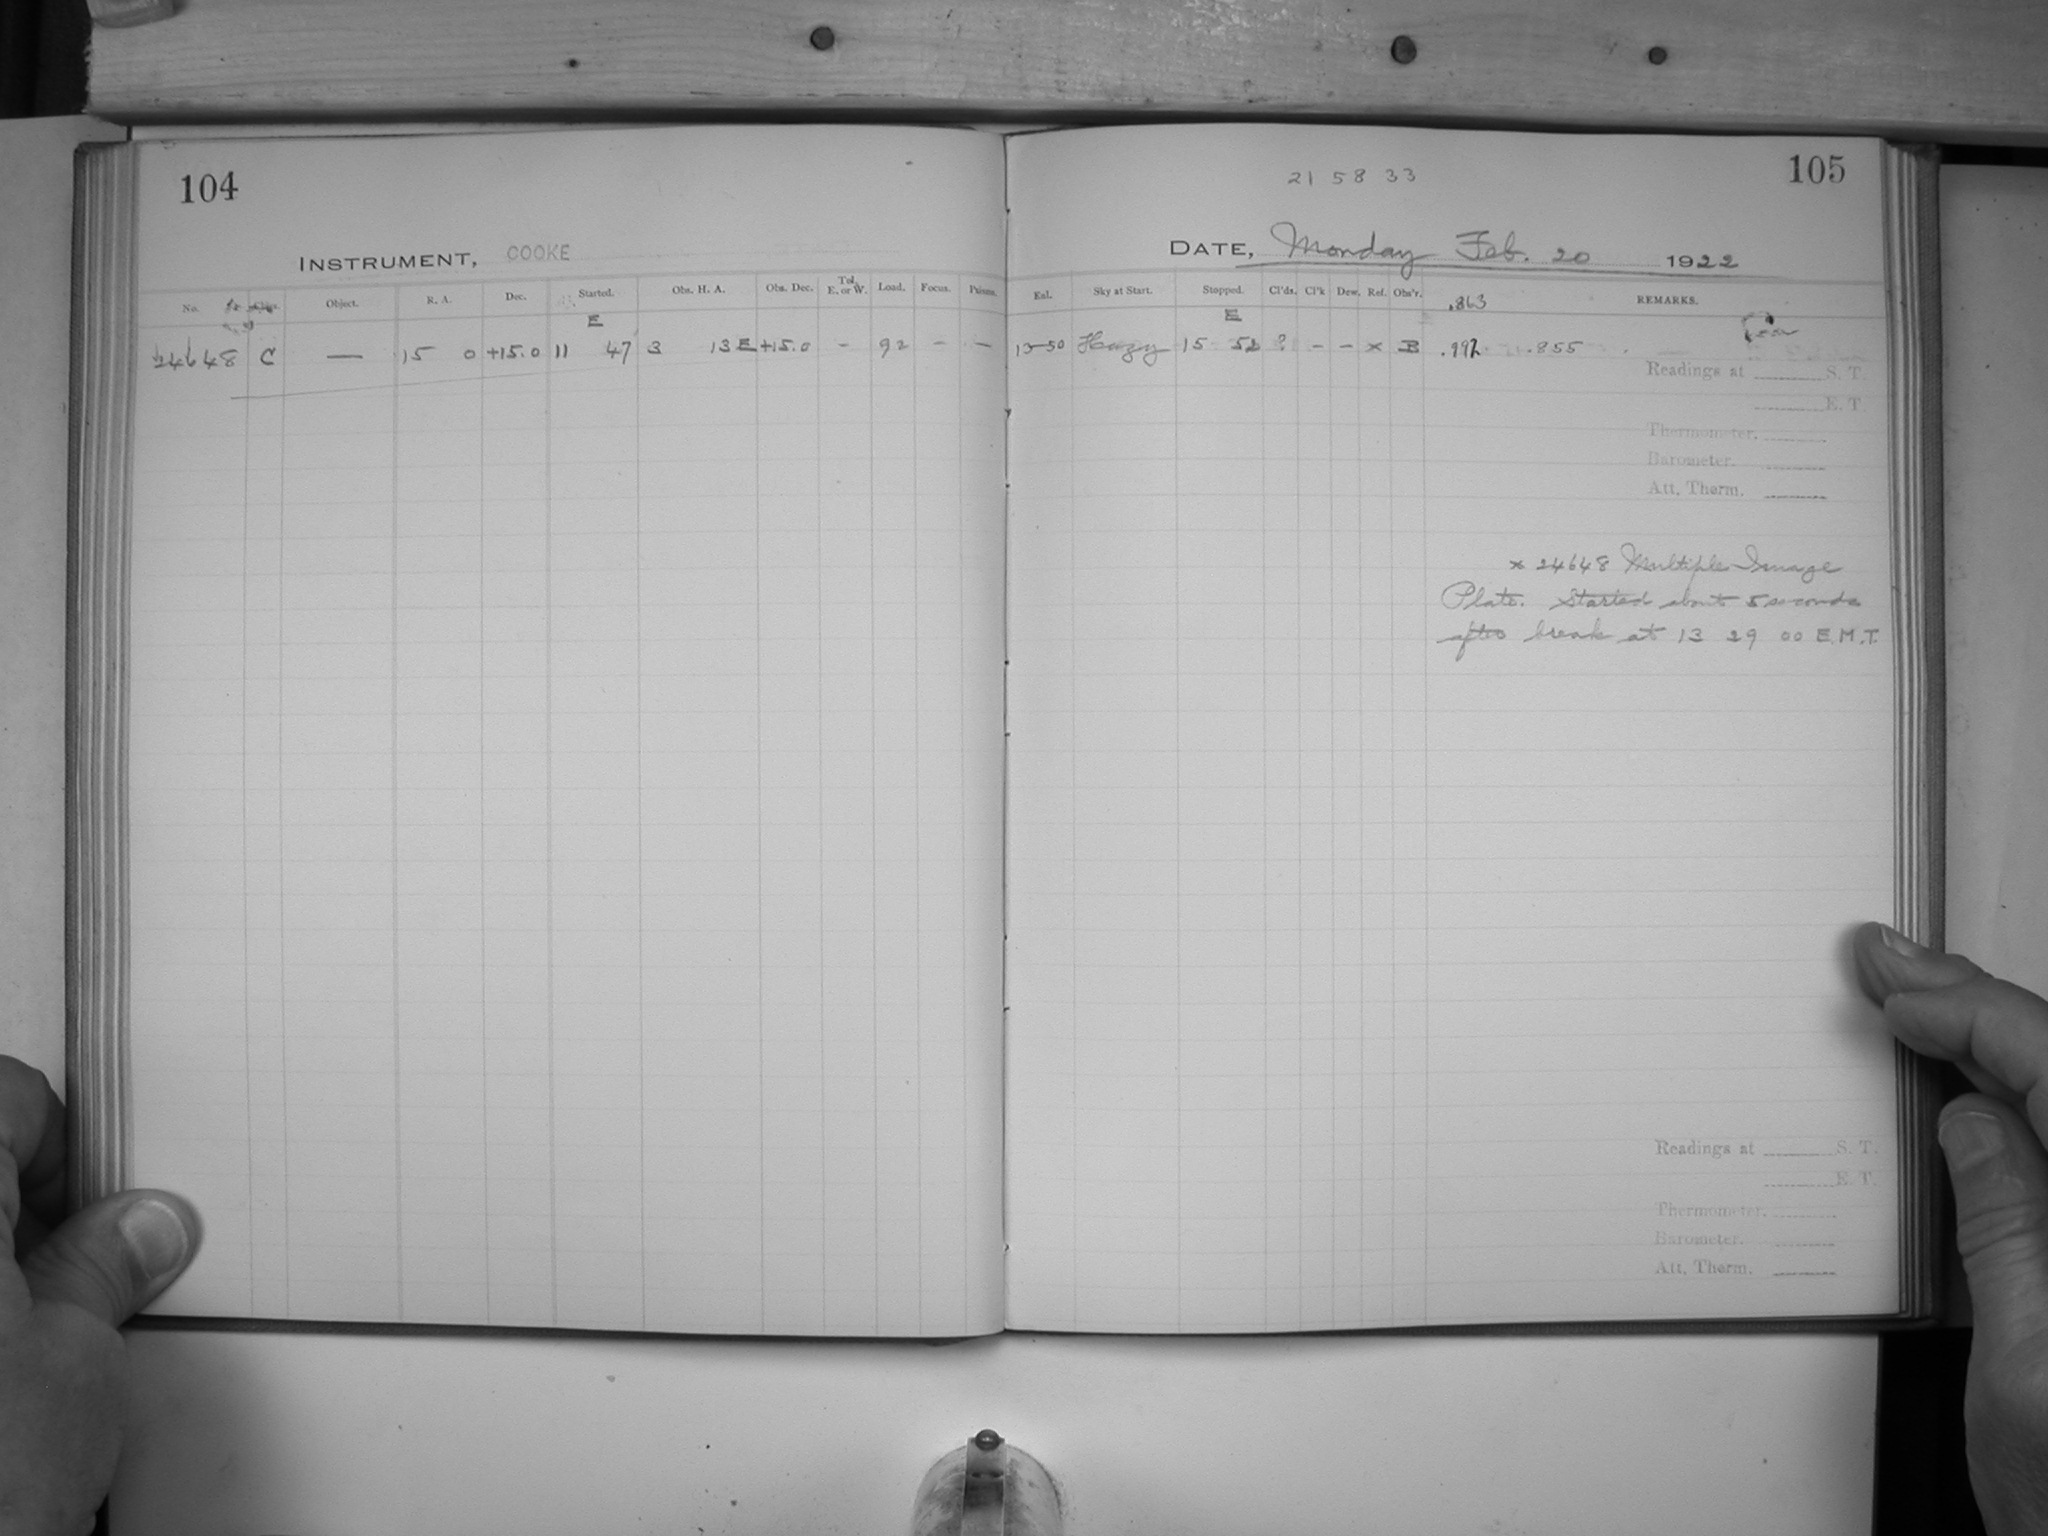 104
INSTRUMENT, COOKE
No. Object. R. A. Dec. Started. Obs. H. A. Obs. Dec. Tel. E. or W. Load. Focus. Prisms.
E
24648 C — 15 0 +15.0 11 47 3 13 E +15.0 - 92 - -
21 58 33
105
DATE, Monday Feb. 20 1922
Enl. Sky at Start. Stopped. Cl'ds. Cl'k Dew. Ref. Obs'r. .863 REMARKS.
E
13-50 Hazy 15 52 ? - - x B .992 .855
Readings at S. T.
E. T.
Thermometer.
Barometer.
Att. Therm.
x 24648 Multiple Image
Plate. Started about 5 seconds
after break at 13 29 00 E.M.T.
Readings at S. T.
E. T.
Thermometer.
Barometer.
Att. Therm.